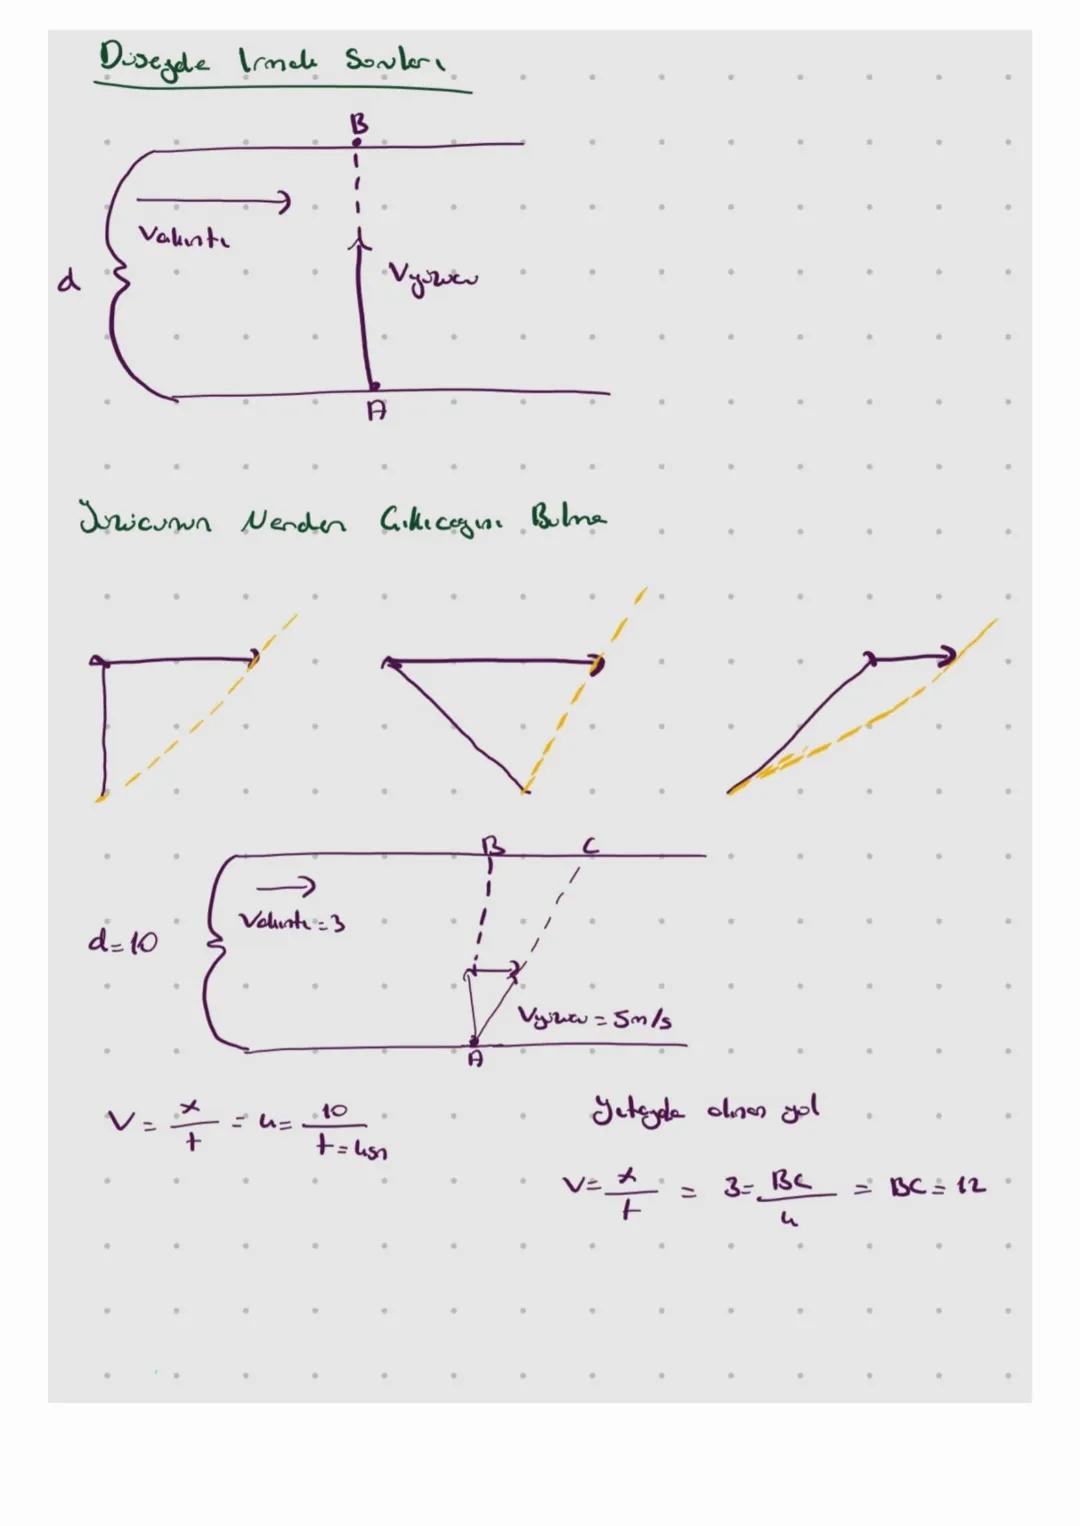 Düşeyde Irmak Soruları
B
Vakıntı
d
Vyüzücü
A
Yüzücünün Nerden Çıkıcağını Bulma
B C
Vakıntı = 3
d = 10
Vyüzücü = 5m/s
A
V = x/t = 4 = 10/t = 4sn
Yatayda alınan yol
V = x/t = 3 = BC/4 = BC = 12